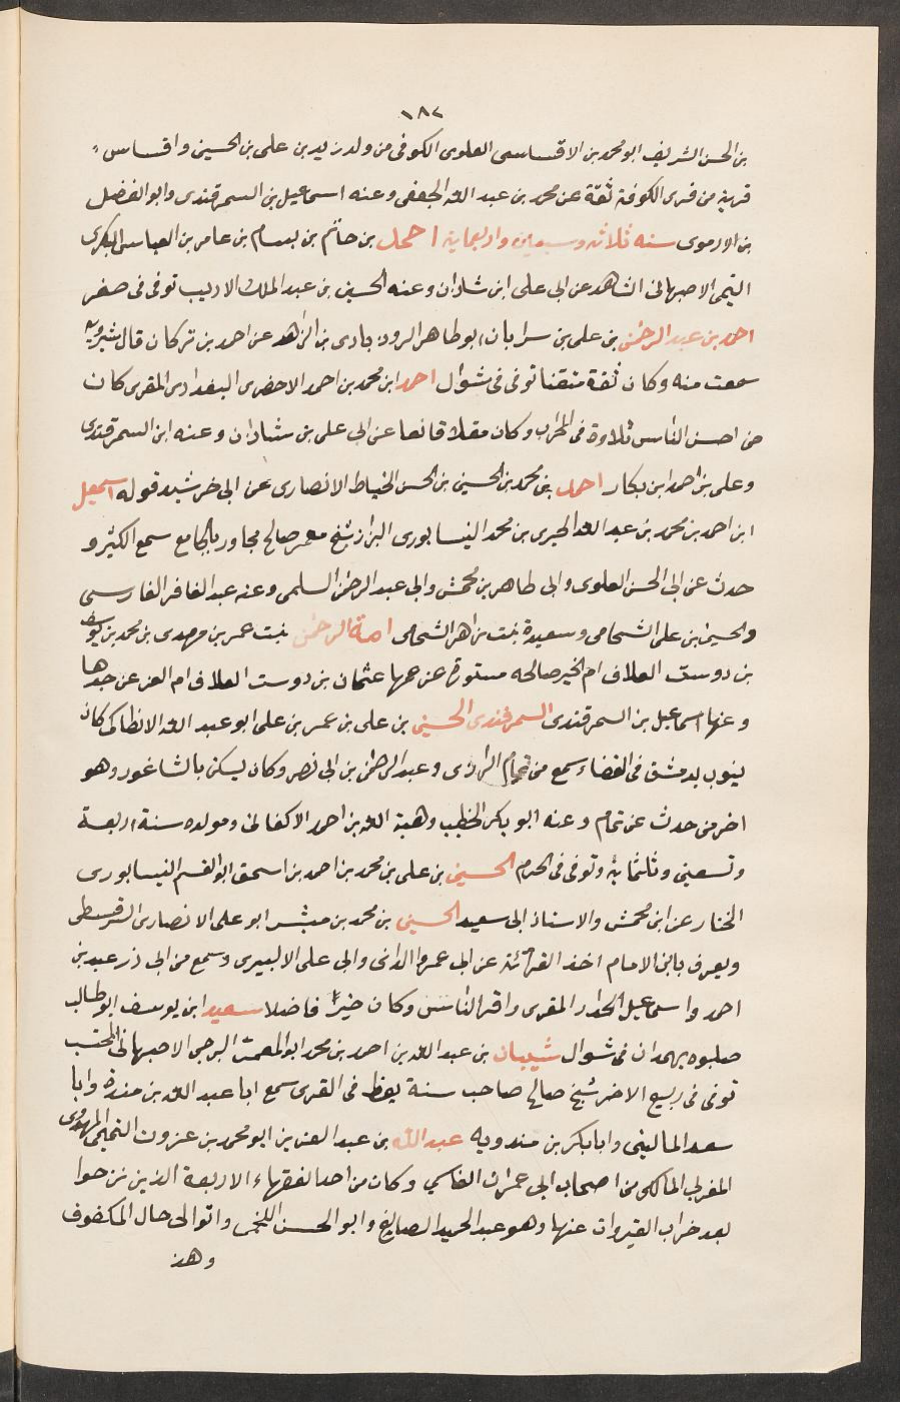 ١٨٢
بن الحسن الشريف ابو محمد بن الاقساسى العلوى الكوفى من ولد زيد بن على بن الحسين واقساس
قرية من قرى الكوفة ثقة عن محمد بن عبد الله الجعفى وعنه اسماعيل بن السمرقندى وابو الفضل
بن الارموى سنه ثلاث وسبعين واربعماية احمد بن حاتم بن بسام بن عامر بن العباس البكرى
التيمى الاصبهانى الشاهد عن ابى على ابن شاذان وعنه الحسين بن عبد الملك الاديب توفى فى صفر
احمد بن عبد الرحمن بن على بن سرابان ابو طاهر الروذبادى بن الزاهد عن احمد بن تركان قال شيرويه
سمعت منه وكان ثقة متقنا توفى فى شوال احمد ابن محمد بن احمد الاخضرى البغدادى المقرى كان
من احسن الناس تلاوة فى المحراب وكان مقلا قانعا عن ابى على بن شاذان وعنه ابن السمرقندى
وعلى بن احمد ابن بكار احمد بن محمد بن الحسين بن الحسن الخياط الانصارى عن ابى خرشيد قوله اسمعيل
ابن احمد بن محمد بن عبد الله الجيرى بن محمد النيسابورى البزاز شيخ معمر صالح مجاور بالجامع سمع الكثير و
حدث عن ابى الحسن العلوى وابى طاهر بن محمش وابى عبد الرحمن السلمى وعنه عبد الغافر الفارسى
والحسين بن على الشحامى وسعيدة بنت زاهر الشحامى امة الرحمن بنت عمر بن مهدى بن محمد بن يوسف
بن دوست العلاف ام الخير صالحه مستورة عن عمها عثمان بن دوست العلاف ام العز عن جدها
وعنها اسماعيل بن السمرقندى السمرقندى الحسين بن على بن عمر بن على ابو عبد الله الانطاكى كان
ينوب بدمشق فى القضاء سمع من تمام الرازى وعبد الرحمن بن ابى نصر وكان يسكن بالشاغور وهو
اخر من حدث عن تمام وعنه ابو بكر الخطيب وهبة الله بن احمد الاكفانى ومولده سنة اربعة
وتسعين وثلثماية وتوفى فى المحرم الحسين بن على بن محمد بن احمد بن اسحق ابو القسم النيسابورى
الختار عن ابن محمش والاستاذ ابى سعيد الحسين بن محمد بن مبشر ابو على الانصارى السرقسطى
ويعرف بابن الامام اخذ القرائة عن ابى عمرو الدانى وابى على الالبيرى وسمع من ابى ذر عبد بن
احمد واسماعيل الحداد المقرى واقرا الناس وكان خيرًا فاضلا سعيد ابن يوسف ابو طالب
صلبوه بهمدان فى شوال شيبان بن عبد الله بن احمد بن محمد ابو المعمر البرجى الاصبهانى المحتسب
توفى فى ربيع الاخر شيخ صالح صاحب سنة يعظ فى القرى سمع ابا عبد الله بن مندة وابا
سعد المالينى وابا بكر بن مندويه عبد الله بن عبد العزيز بن ابو محمد بن عزوت التجيبى المهدوى
المغربى المالكى من اصحاب ابى عمران الفاسى وكان من احد الفقهاء الاربعة الذين نزحوا
بعد خراب القيروان عنها وهو عبد الحميد الصايغ وابو الحسن اللخمى واتوالى حال المكفوف
وهذ